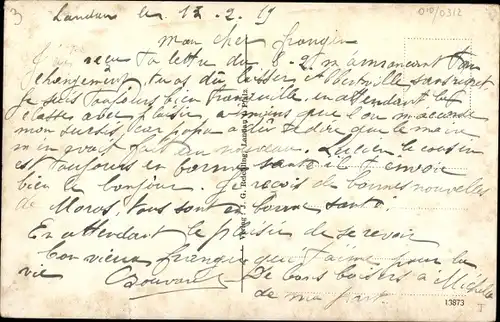 3
010/0312
Landau le 12 - 2 - 19
Mon cher frangin
J'ai reçu ta lettre du 8-2 m'annonçant ton
changement, tu as dû laisser Albertville sans regret
Je suis toujours bien tranquille en attendant la
classe avec plaisir, a moins que l'on m'accorde
mon sursis, car papa a dû te dire que le maire
m'en avait fait un nouveau. Lucien le cousin
est toujours en bonne santé il t'envoie
bien le bonjour. Je reçois de bonnes nouvelles
de Moros, tous sont en bonne santé.
En attendant le plaisir de se revoir
ton vieux frangin qui t'aime pour la
vie
De bons baisers à Michelle
de ma part.
Verlag: J. G. Landau Pfalz.
13873